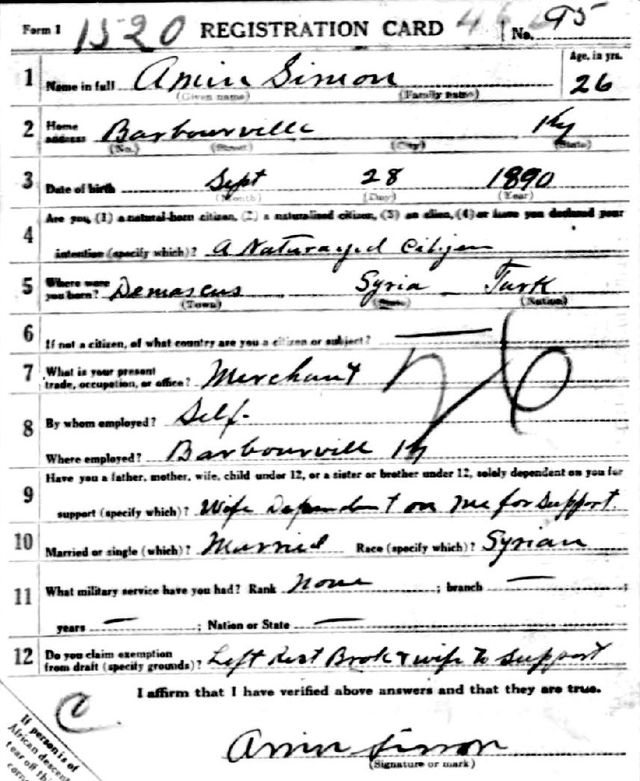 Form 1 1520 REGISTRATION CARD No. 95
1 Name in full Amin Simon Age, in yrs.
(Given name) (Family name) 26
2 Home address Barbourville Ky
(No.) (Street) (City) (State)
3 Date of birth Sept 28 1890
(Month) (Day) (Year)
Are you, (1) a natural-born citizen, (2) a naturalized citizen, (3) an alien, (4) or have you declared your
4 intention (specify which)? A Naturalized Citizen
5 Where were you born? Demascus Syria - Turk
(Town) (State) (Nation)
6 If not a citizen, of what country are you a citizen or subject? —
7 What is your present trade, occupation, or office? Merchant
26
8 By whom employed? Self.
Where employed? Barbourvill Ky
Have you a father, mother, wife, child under 12, or a sister or brother under 12, solely dependent on you for
9 support (specify which)? Wife Dependent on me for Support.
10 Married or single (which)? Married Race (specify which)? Syrian
11 What military service have you had? Rank None ; branch —
years — ; Nation or State —
12 Do you claim exemption from draft (specify grounds)? Left Rist Brok & wife to support
I affirm that I have verified above answers and that they are true.
If person is of
African descent
tear off this
Amin Simon
(Signature or mark)